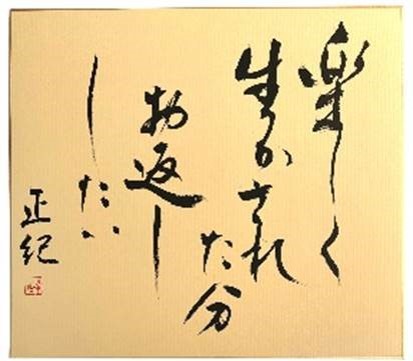 楽しく
生かされ
た分
お返し
したい
正紀